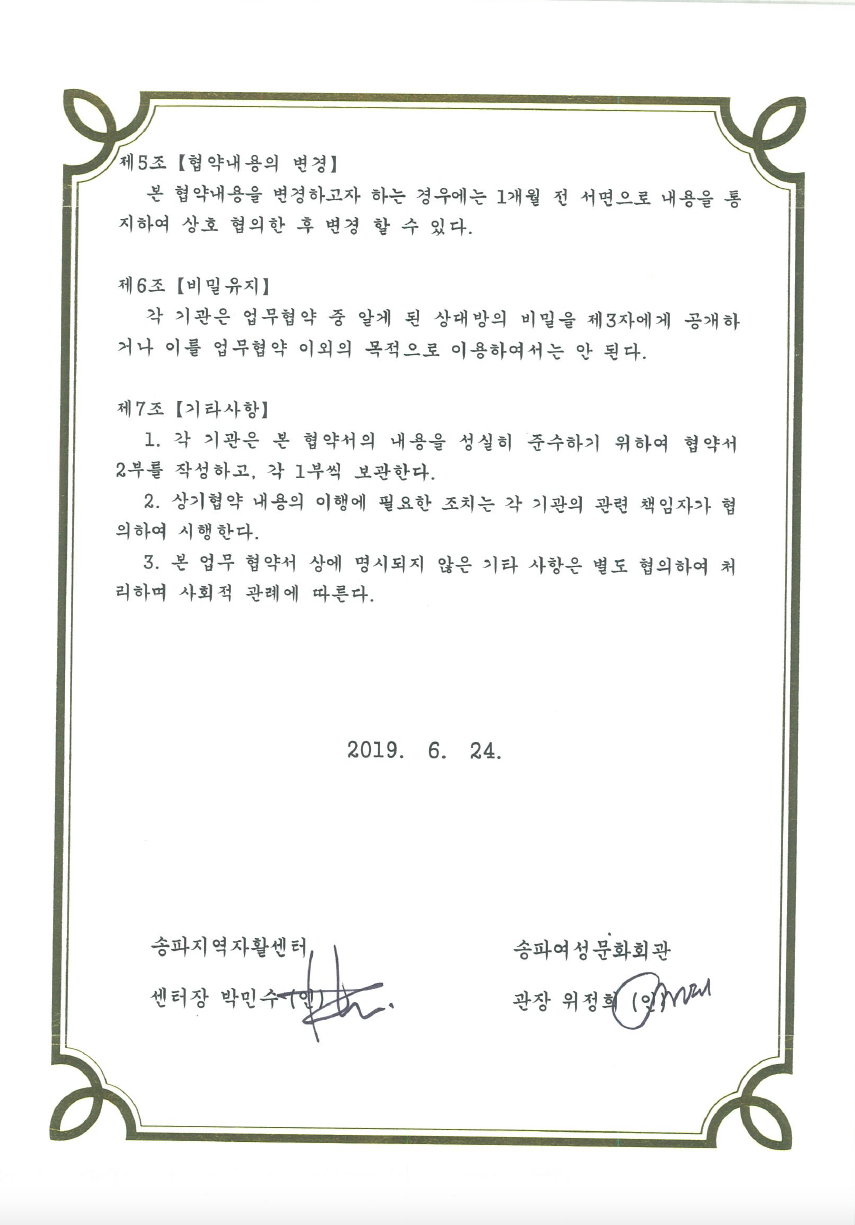 제5조 【협약내용의 변경】
본 협약내용을 변경하고자 하는 경우에는 1개월 전 서면으로 내용을 통
지하여 상호 협의한 후 변경 할 수 있다.
제6조 【비밀유지】
각 기관은 업무협약 중 알게 된 상대방의 비밀을 제3자에게 공개하
거나 이를 업무협약 이외의 목적으로 이용하여서는 안 된다.
제7조 【기타사항】
1. 각 기관은 본 협약서의 내용을 성실히 준수하기 위하여 협약서
2부를 작성하고, 각 1부씩 보관한다.
2. 상기협약 내용의 이행에 필요한 조치는 각 기관의 관련 책임자가 협
의하여 시행한다.
3. 본 업무 협약서 상에 명시되지 않은 기타 사항은 별도 협의하여 처
리하며 사회적 관례에 따른다.
2019. 6. 24.
송파지역자활센터
센터장 박민수 (인)
송파여성문화회관
관장 위정희 (인)